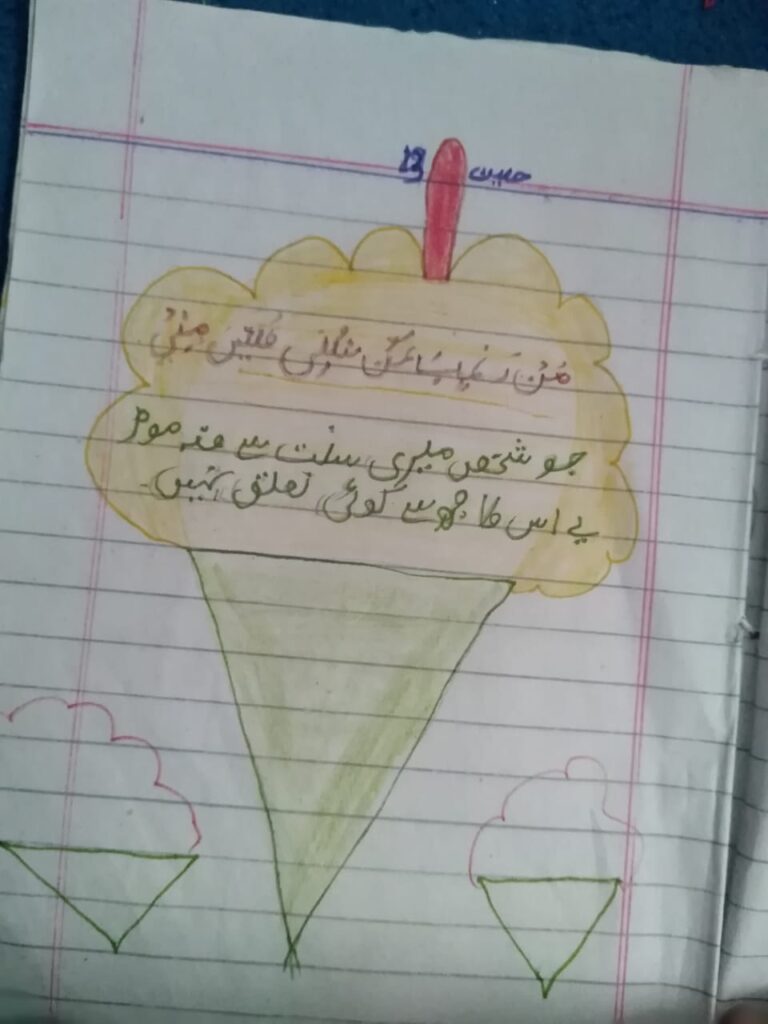 حدیث 13
مَنْ رَغِبَ عَنْ سُنَّتِی فَلَیْسَ مِنِّی
جو شخص میری سنت سے منہ موڑ
یے اس کا مجھ سے کوئی تعلق نہیں۔